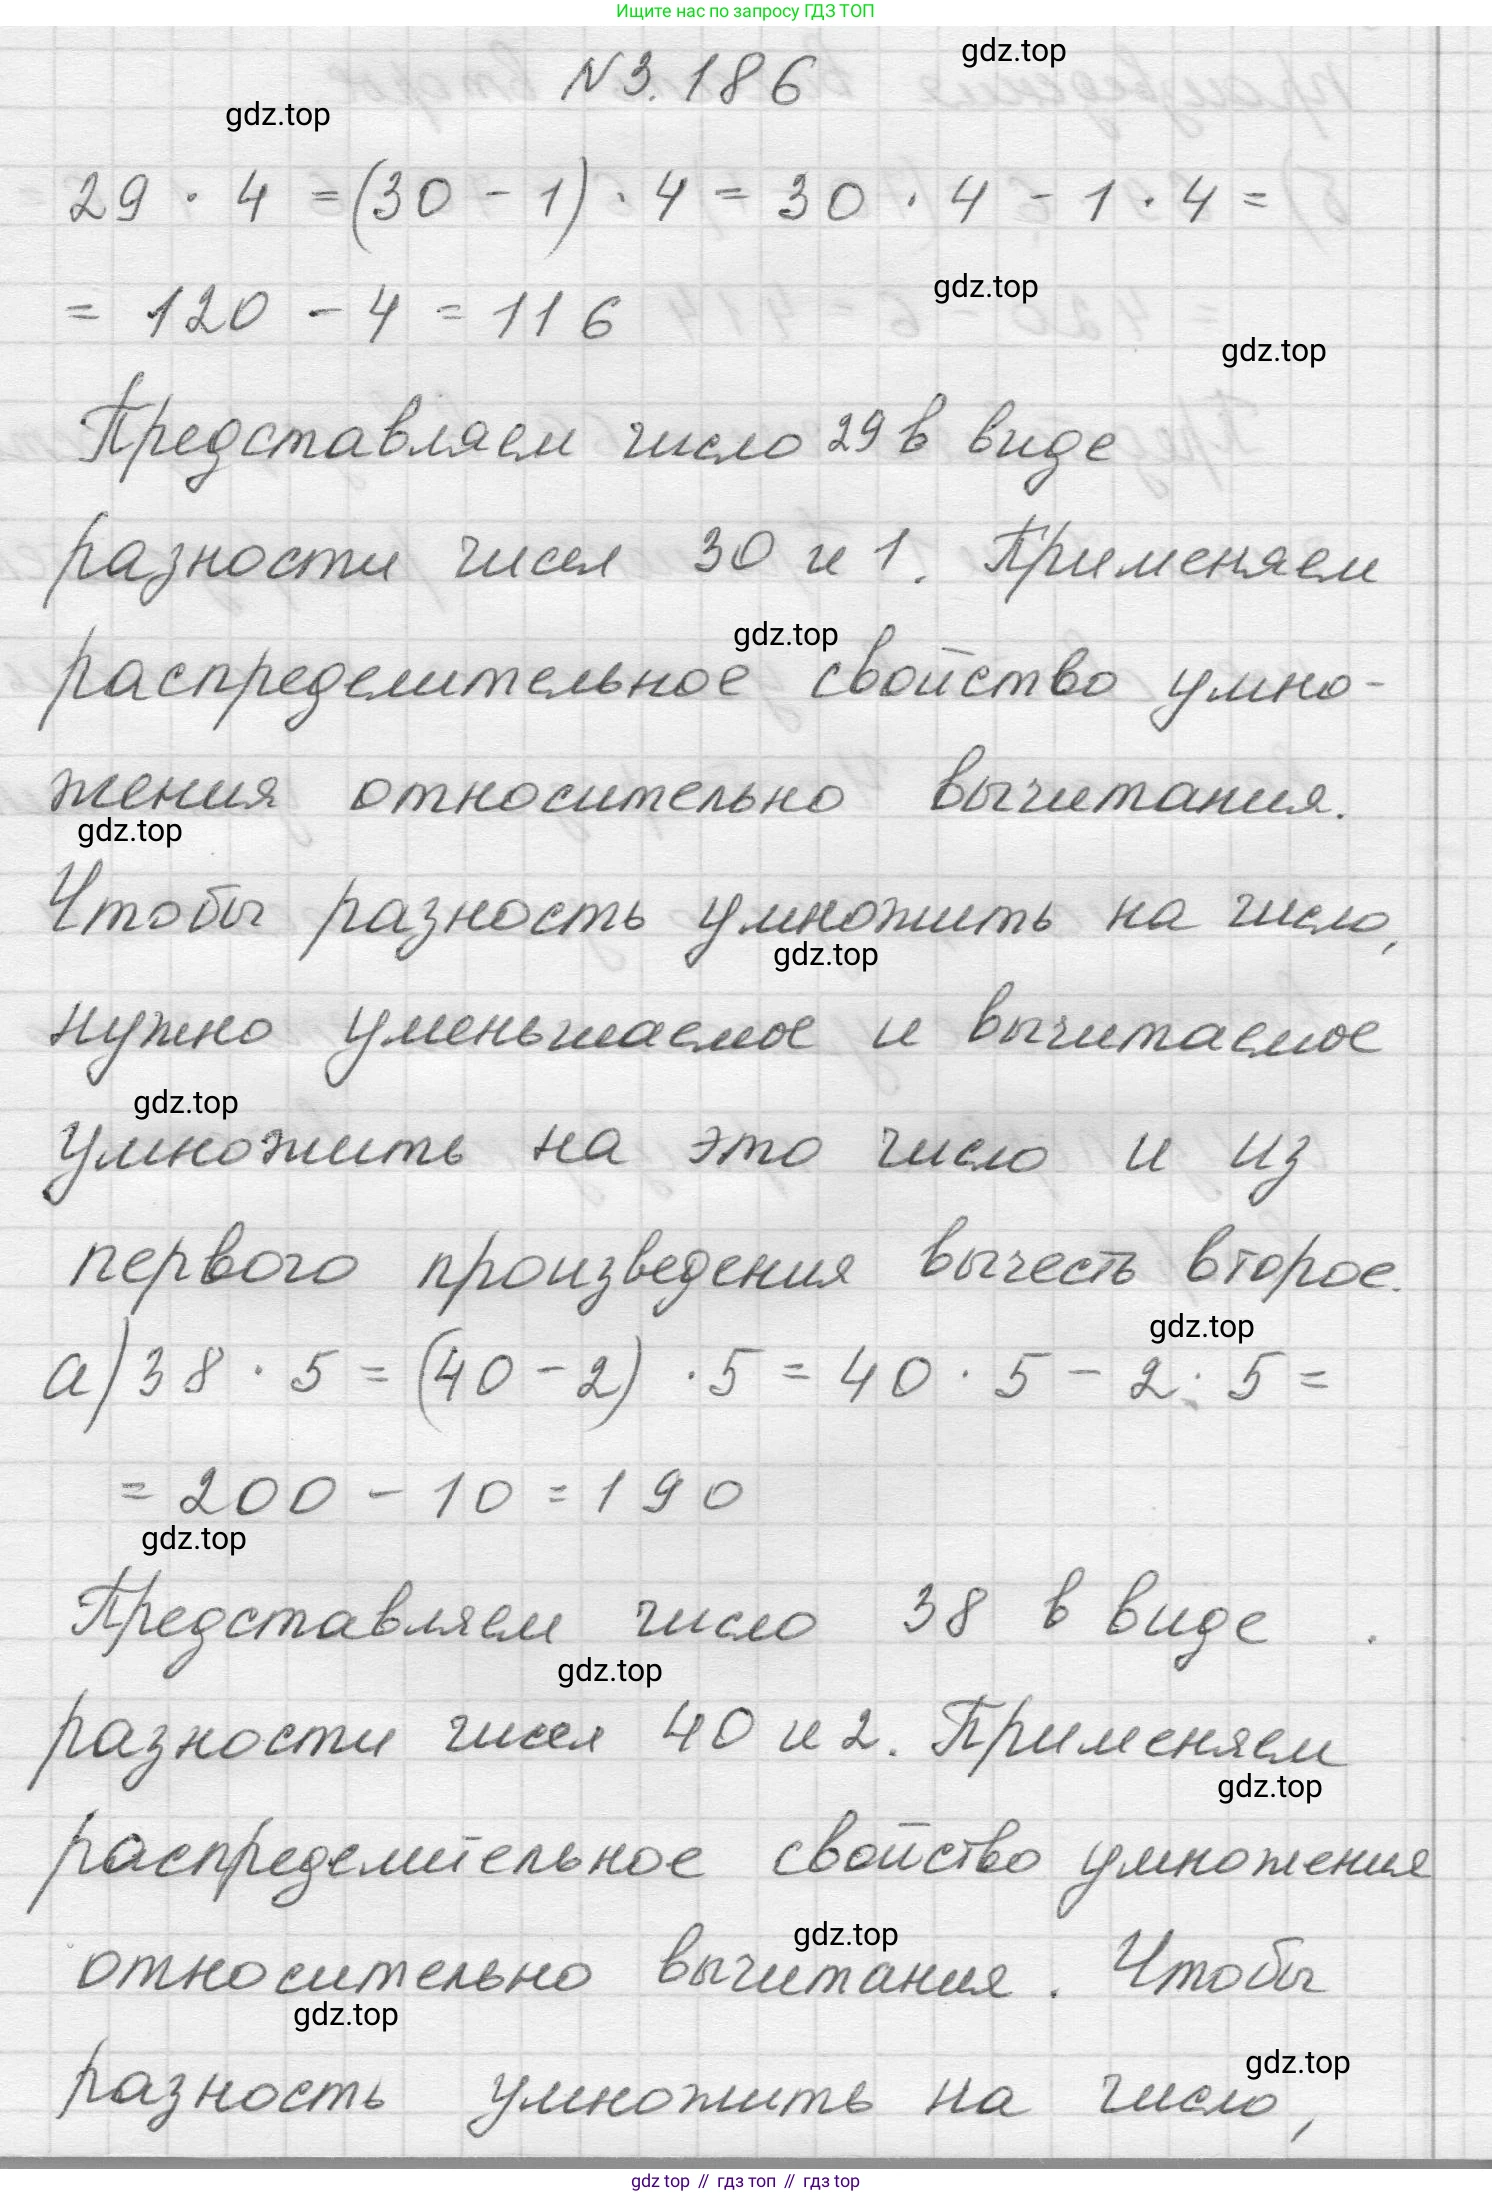 Ищите нас по запросу ГДЗ ТОП
gdz.top
N 3.186
gdz.top
29 · 4 = (30 - 1) · 4 = 30 · 4 - 1 · 4 =
= 120 - 4 = 116
gdz.top
gdz.top
Представляем число 29 в виде
разности чисел 30 и 1. Применяем
gdz.top
распределительное свойство умно-
жения относительно вычитания.
gdz.top
Чтобы разность умножить на число,
gdz.top
нужно уменьшаемое и вычитаемое
gdz.top
умножить на это число и из
первого произведения вычесть второе.
gdz.top
а) 38 · 5 = (40 - 2) · 5 = 40 · 5 - 2 · 5 =
= 200 - 10 = 190
gdz.top
Представляем число 38 в виде
gdz.top
разности чисел 40 и 2. Применяем
gdz.top
распределительное свойство умножения
gdz.top
относительно вычитания. Чтобы
gdz.top
gdz.top
разность умножить на число,
gdz top // гдз топ // гдз top